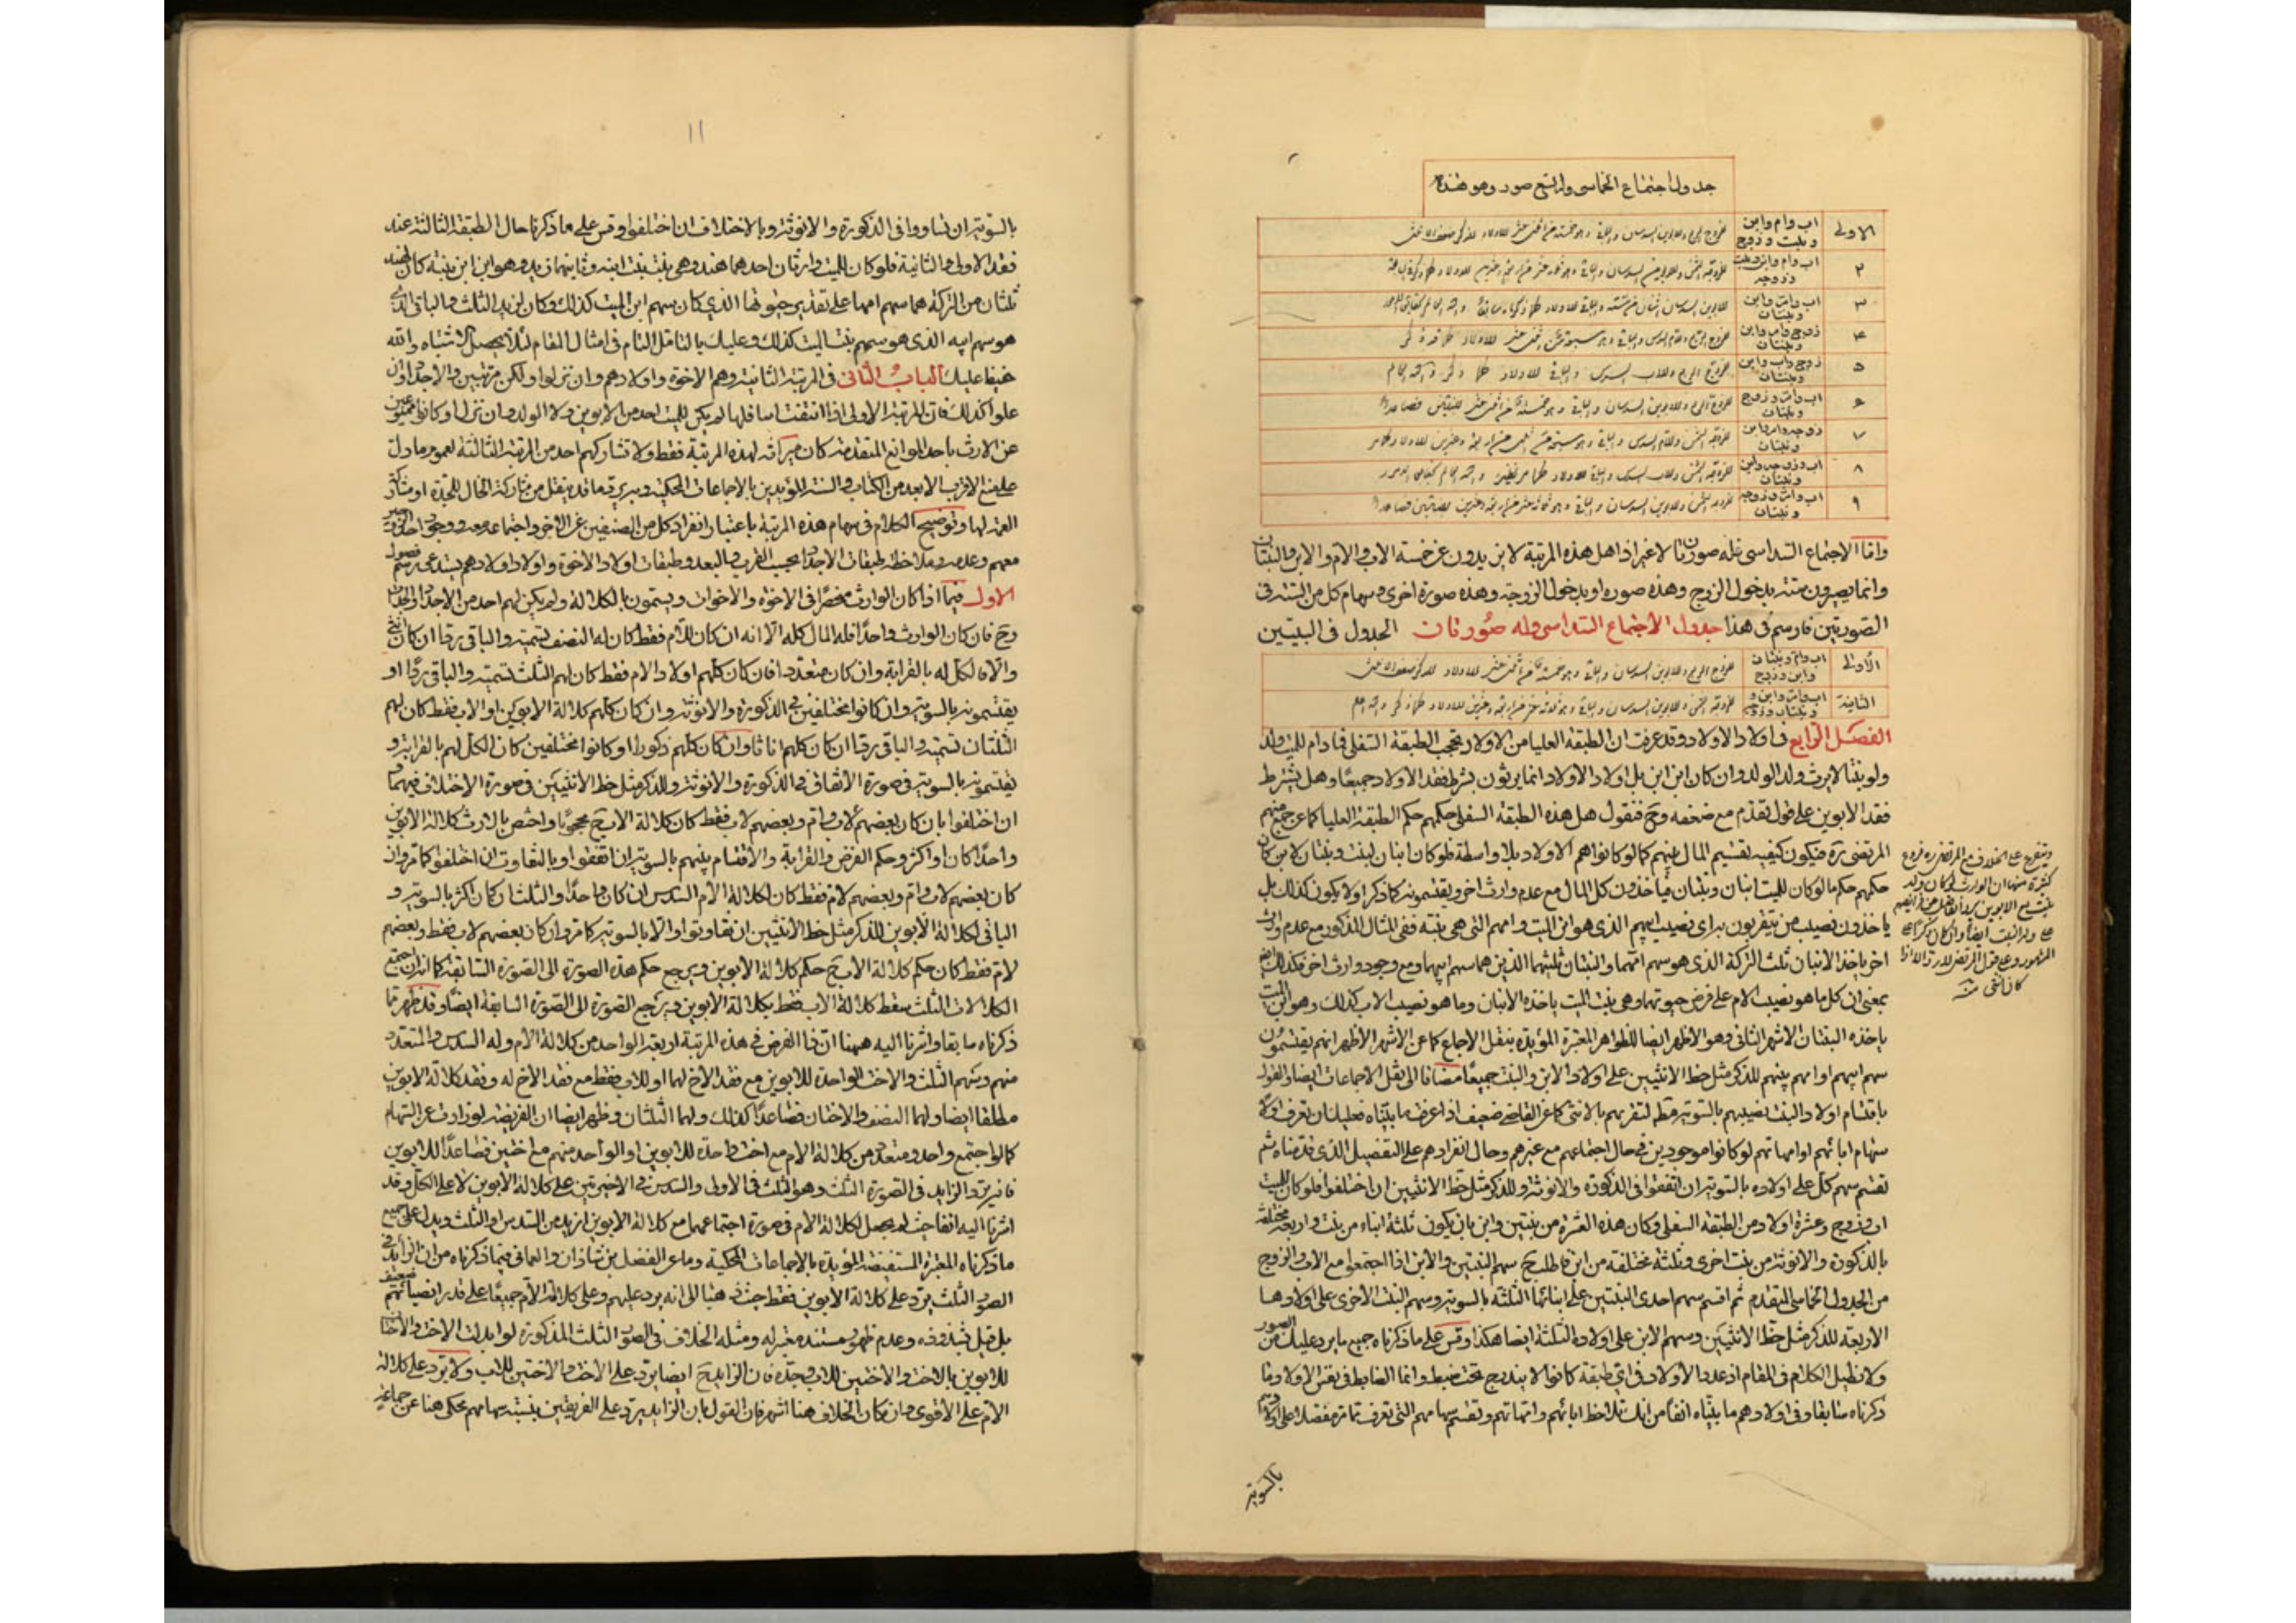 جدول اجتماع الخماسي وله تسع صور وهو هذه
الاولى اب وام وابن وبنت وزوج للزوج الربع وللابوين السدسان والباقي وهو خمسة من اثني عشر للاولاد للذكر ضعف الانثى
٢ اب وام وابن وبنت وزوجه للزوجة الثمن وللابوين السدسان والباقي وهو ثلاثة عشر من اربعة وعشرين للاولاد
٣ اب وام وابن وبنتان للابوين السدسان اثنان من ستة والباقي للاولاد
٤ زوج وام وابن وبنتان للزوج الربع وللام السدس والباقي وهو سبعة من اثني عشر للاولاد
٥ زوج واب وابن وبنتان للزوج الربع وللاب السدس والباقي للاولاد
٦ اب وام وزوج وبنتان للزوج الربع وللابوين السدسان والباقي وهو خمسة من اثني عشر للبنتين فصاعدا
٧ زوجه وام وابن وبنتان للزوجة الثمن وللام السدس والباقي وهو سبعة عشر من اربعة وعشرين للاولاد
٨ اب وزوجه وابن وبنتان للزوجة الثمن وللاب السدس والباقي للاولاد
٩ اب وام وزوجه وبنتان للزوجة الثمن وللابوين السدسان والباقي وهو ثلاثة عشر من اربعة وعشرين للبنتين فصاعدا
واما الاجتماع السداسي فله صورتان لا غير اذ اهل هذه المرتبة لا يزيدون عن خمسة الاب والام والابن والبنتان
وانما يصيرون ستة بدخول الزوج وهذه صورة او بدخول الزوجة وهذه صورة اخرى وسهام كل من الستة في
الصورتين فارسم في هذا جدول الاجتماع السداسي وله صورتان الجدول في البيتين
الاولى اب وام وبنتان وابن وزوج للزوج الربع وللابوين السدسان والباقي وهو خمسة من اثني عشر للاولاد للذكر ضعف الانثى
الثانية اب وام وابن وبنتان وزوجه للزوجة الثمن وللابوين السدسان والباقي وهو ثلاثة عشر من اربعة وعشرين للاولاد
الفصل الرابع في اولاد الاولاد وقد عرفت ان الطبقة العليا من الاولاد تحجب الطبقة السفلى فما دام للميت ولد
ولو بنتا لا يرث ولد الولد وان كان ابن ابن بل اولاد الاولاد انما يرثون بشرط فقد الاولاد جميعا وهل يشترط
فقد الابوين على قول تقدم مع ضعفه وح فنقول هل هذه الطبقة السفلى حكمهم حكم الطبقة العليا كما عن جمع منهم
المرتضى ره فيكون كيفية تقسيم المال بينهم كما لو كانوا هم الاولاد بلا واسطة فلو كان ابنان لبنت وبنتان لابن كان
حكمهم حكم ما لو كان للميت ابنان وبنتان فياخذون كل المال مع عدم وارث اخر ويقتسمونه كما ذكر او لا يكون كذلك بل
ياخذون نصيب من يتقربون به اي نصيب ابيهم الذي هو ابن الميت وامهم التي هي بنته ففي المثال المذكور مع عدم وارث
اخر ياخذ الابنان ثلث التركة الذي هو سهم امهما والبنتان ثلثيها الذين هما سهم ابيهما ومع وجود وارث اخر فكذلك ايضا
بمعنى ان كل ما هو نصيب الام على فرض حيوتها وهي بنت الميت ياخذه الابنان وما هو نصيب الاب كذلك وهو ابن الميت
ياخذه البنتان الاشهر الثاني وهو الاظهر ايضا للظواهر المعتبرة المؤيدة بنقل الاجماع كما عن الاشهر الاظهر انهم يقتسمون
سهم ابيهم او امهم بينهم للذكر مثل حظ الانثيين على اولاد الابن والبنت جميعا مضافا الى نقل الاجماعات ايضا والقول
باقتسام اولاد البنت نصيبهم بالسوية مط لتقربهم بالانثى كما عن القاضي ضعيف اذا عرفت ما بيناه فعليك ان تعرف اولا
سهام ابائهم او امهاتهم لو كانوا موجودين في حال اجتماعهم مع غيرهم وحال انفرادهم على التفصيل الذي قدمناه ثم
تقسم سهم كل على اولاده بالسوية ان اتفقوا في الذكورة والانوثة وللذكر مثل حظ الانثيين ان اختلفوا فلو كان للميت
اب وزوج وعشرة اولاد من الطبقة السفلى وكان هذه العشرة من بنتين وابن بان يكون ثلثة ابناء من بنت واربعة مختلفة
بالذكورة والانوثة من بنت اخرى وثلثة مختلفة من ابن فاطلب ح سهم البنتين والابن اذا اجتمعوا مع الاب والزوج
من الجدول الخماسي المتقدم ثم اقسم سهم احدى البنتين على ابنائها الثلثة بالسوية وسهم البنت الاخرى على اولادها
الاربعة للذكر مثل حظ الانثيين وسهم الابن على اولاده الثلثة ايضا هكذا وقس على ما ذكرناه جميع ما يرد عليك من الصور
ولا نطيل الكلام في المقام اذ عدد الاولاد في اي طبقة كانوا لا يندرج تحت ضبط وانما الضابط في نفس الاولاد ما
ذكرناه سابقا وفي اولادهم ما بيناه انفا من انك تلاحظ ابائهم وامهاتهم وتقسم سهامهم التي تعرف مما مر مفصلا على اولادهم
بالسوية
ويتفرع على الخلاف مع المرتضى ره فروع
كثيرة منها ان الوارث لو كان ولد
بنت مع الابوين
المشهور وعلى قول المرتضى
كان انثى منه
١١
بالسوية ان تساووا في الذكورة والانوثة وبالاختلاف ان اختلفوا وقس على ما ذكرنا حال الطبقة الثالثة عند
فقد الاولى والثانية فلو كان للميت وارثان احدهما هند وهي بنت بنت ابنه وثانيهما زيد وهو ابن ابن بنته كان لهند
ثلثان من التركة هما سهم امها على تقدير حيوتها الذي كان سهم ابن الميت كذلك وكان لزيد الثلث والباقي الذي
هو سهم ابيه الذي هو سهم بنت الميت كذلك وعليك بالتامل التام في امثال المقام لئلا يحصل الاشتباه والله
حفيظ عليك الباب الثاني في المرتبة الثانية وهم الاخوة واولادهم وان نزلوا ولكن مرتبين والاجداد وان
علوا كذلك فان المرتبة الاولى اذا انتفت اسا فلها لم يكن للميت احد من الابوين ولا الولد وان نزل او كانوا ممنوعين
عن الارث باحد الموانع المتقدمة كان ميراثه لهذه المرتبة فقط ولا تشاركهم احد من المرتبة الثالثة لعموم ما دل
على منع الاقرب الابعد من الكتاب والسنة المؤيدين بالاجماعات المحكية وما قد ينقل من مشاركة الخال للجدة او مشاركة
العمة لها وتوضيح الكلام في سهام هذه المرتبة باعتبار انفراد كل من الصنفين عن الاخر واجتماعه معه ووجود احد الزوجين
معهم وعدمه وملاحظة طبقات الاجداد بحسب القرب والبعد وطبقات اولاد الاخوة واولاد اولادهم يستدعي رسم فصول
الاول فيما اذا كان الوارث منحصرا في الاخوة والاخوات ويسمون بالكلالة ولم يكن لهم احد من الاجداد والجدات
وح فان كان الوارث واحدا فله المال كله الا انه ان كان للام فقط كان له النصف تسمية والباقي ردا ان كان انثى
والا فالكل له بالقرابة وان كان متعددا فان كان كلهم اولاد الام فقط كان لهم الثلث تسمية والباقي ردا و
يقتسمونه بالسوية وان كانوا مختلفين في الذكورة والانوثة وان كان كلهم كلالة الابوين او الاب فقط كان لهم
الثلثان تسمية والباقي ردا ان كان كلهم اناثا وان كان كلهم ذكورا او كانوا مختلفين كان الكل لهم بالقرابة و
يقتسمونه بالسوية في صورة الاتفاق في الذكورة والانوثة وللذكر مثل حظ الانثيين في صورة الاختلاف فيهما و
ان اختلفوا بان كان بعضهم لاب وام وبعضهم لاب فقط كان كلالة الاب ح محجوبا واختص بالارث كلالة الابوين
واحدا كان او اكثر وحكم الفرض والقرابة والاقتسام بينهم بالسوية ان اتفقوا وبالتفاوت ان اختلفوا كما مر وان
كان بعضهم لاب وام وبعضهم لام فقط كان لكلالة الام السدس ان كان واحدا والثلث ان كان اكثر بالسوية و
الباقي لكلالة الابوين للذكر مثل حظ الانثيين ان تفاوتوا والا بالسوية كما مر وان كان بعضهم لاب فقط وبعضهم
لام فقط كان حكم كلالة الاب ح حكم كلالة الابوين ويرجع حكم هذه الصورة الى الصورة السابقة كما ان اجتمع
الكلالات الثلث سقط كلالة الاب فقط بكلالة الابوين ويرجع الصورة الى الصورة السابقة ايضا وقد ظهر مما
ذكرناه سابقا واشرنا اليه ههنا ان ذا الفرض في هذه المرتبة اربعة الواحد من كلالة الام وله السدس والمتعدد
منهم وسهم الثلث والاخت الواحدة للابوين مع فقد الاخ لها او للاب فقط مع فقد الاخ له وفقد كلالة الابوين
مطلقا ايضا ولها النصف والاختان فصاعدا كذلك ولهما الثلثان وظهر ايضا ان الفريضة لو زادت عن السهام
كما لو اجتمع واحد ومتعدد من كلالة الام مع اخت واحدة للابوين او الواحد منهم مع اختين فصاعدا للابوين
فانه يرد الزايد في الصورة الثلث وهو الثلث في الاولى والسدس في الاخيرتين على كلالة الابوين لا على الكل وقد
اشرنا اليه انفا حيث لم يحصل لكلالة الام في صورة اجتماعهما مع كلالة الابوين ازيد من السدس او الثلث ويدل على جميع
ما ذكرناه المعتبرة المستفيضة المؤيدة بالاجماعات المحكية وما عن الفضل بن شاذان والعماني فيما ذكرناه من ان الزايد في
الصور الثلث يرد على كلالة الابوين فقط حيث ذهبا الى انه يرد عليهم وعلى كلالة الام جميعا على قدر انصبائهم ضعيف
بل قيل بشذوذه وعدم ظهور مستنده معتبر له ومثله الخلاف في الصور الثلث المذكورة لو ابدلت الاخت والاختان
للابوين بالاخت والاختين للاب وحده فان الزايد ح ايضا يرد على الاخت والاختين للاب ولا يرد على كلالة
الام على الاقوى وان كان الخلاف هنا اشهر فان القول بان الزايد يرد على الفريقين بنسبة سهامهم محكي هنا عن جماعة